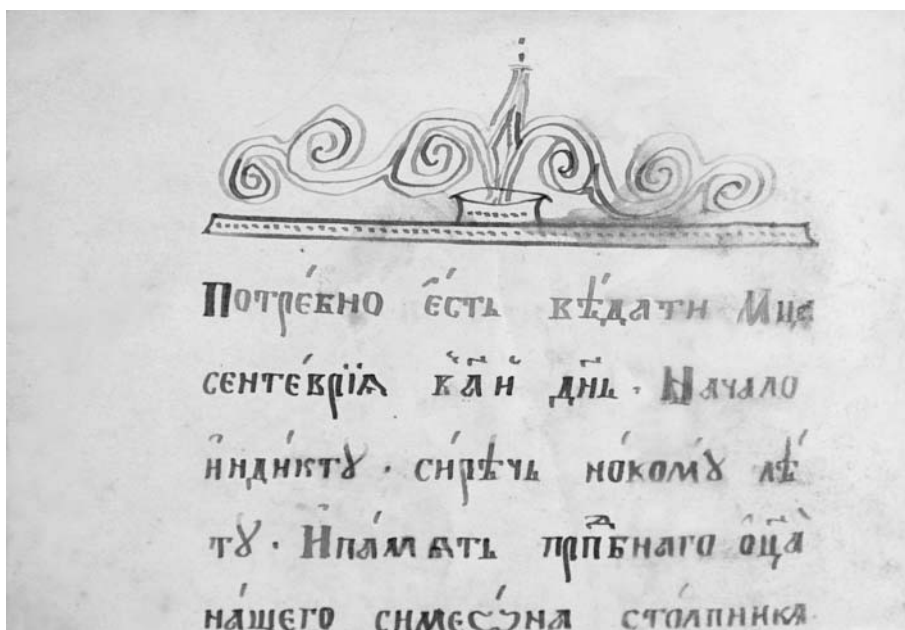 Потре́бно є҆́сть вѣ́дати Мц҃а
сенте́врїѧ в҃ а҃ й дн҃ь · Нача́ло
и҆нді́ктꙋ · си́рѣчь но́вомꙋ лѣ́
тꙋ · И҆ па́мѧть прпⷣбнаго ѻ҆ц҃а̀
на́шего симеѡ́на сто́лпника